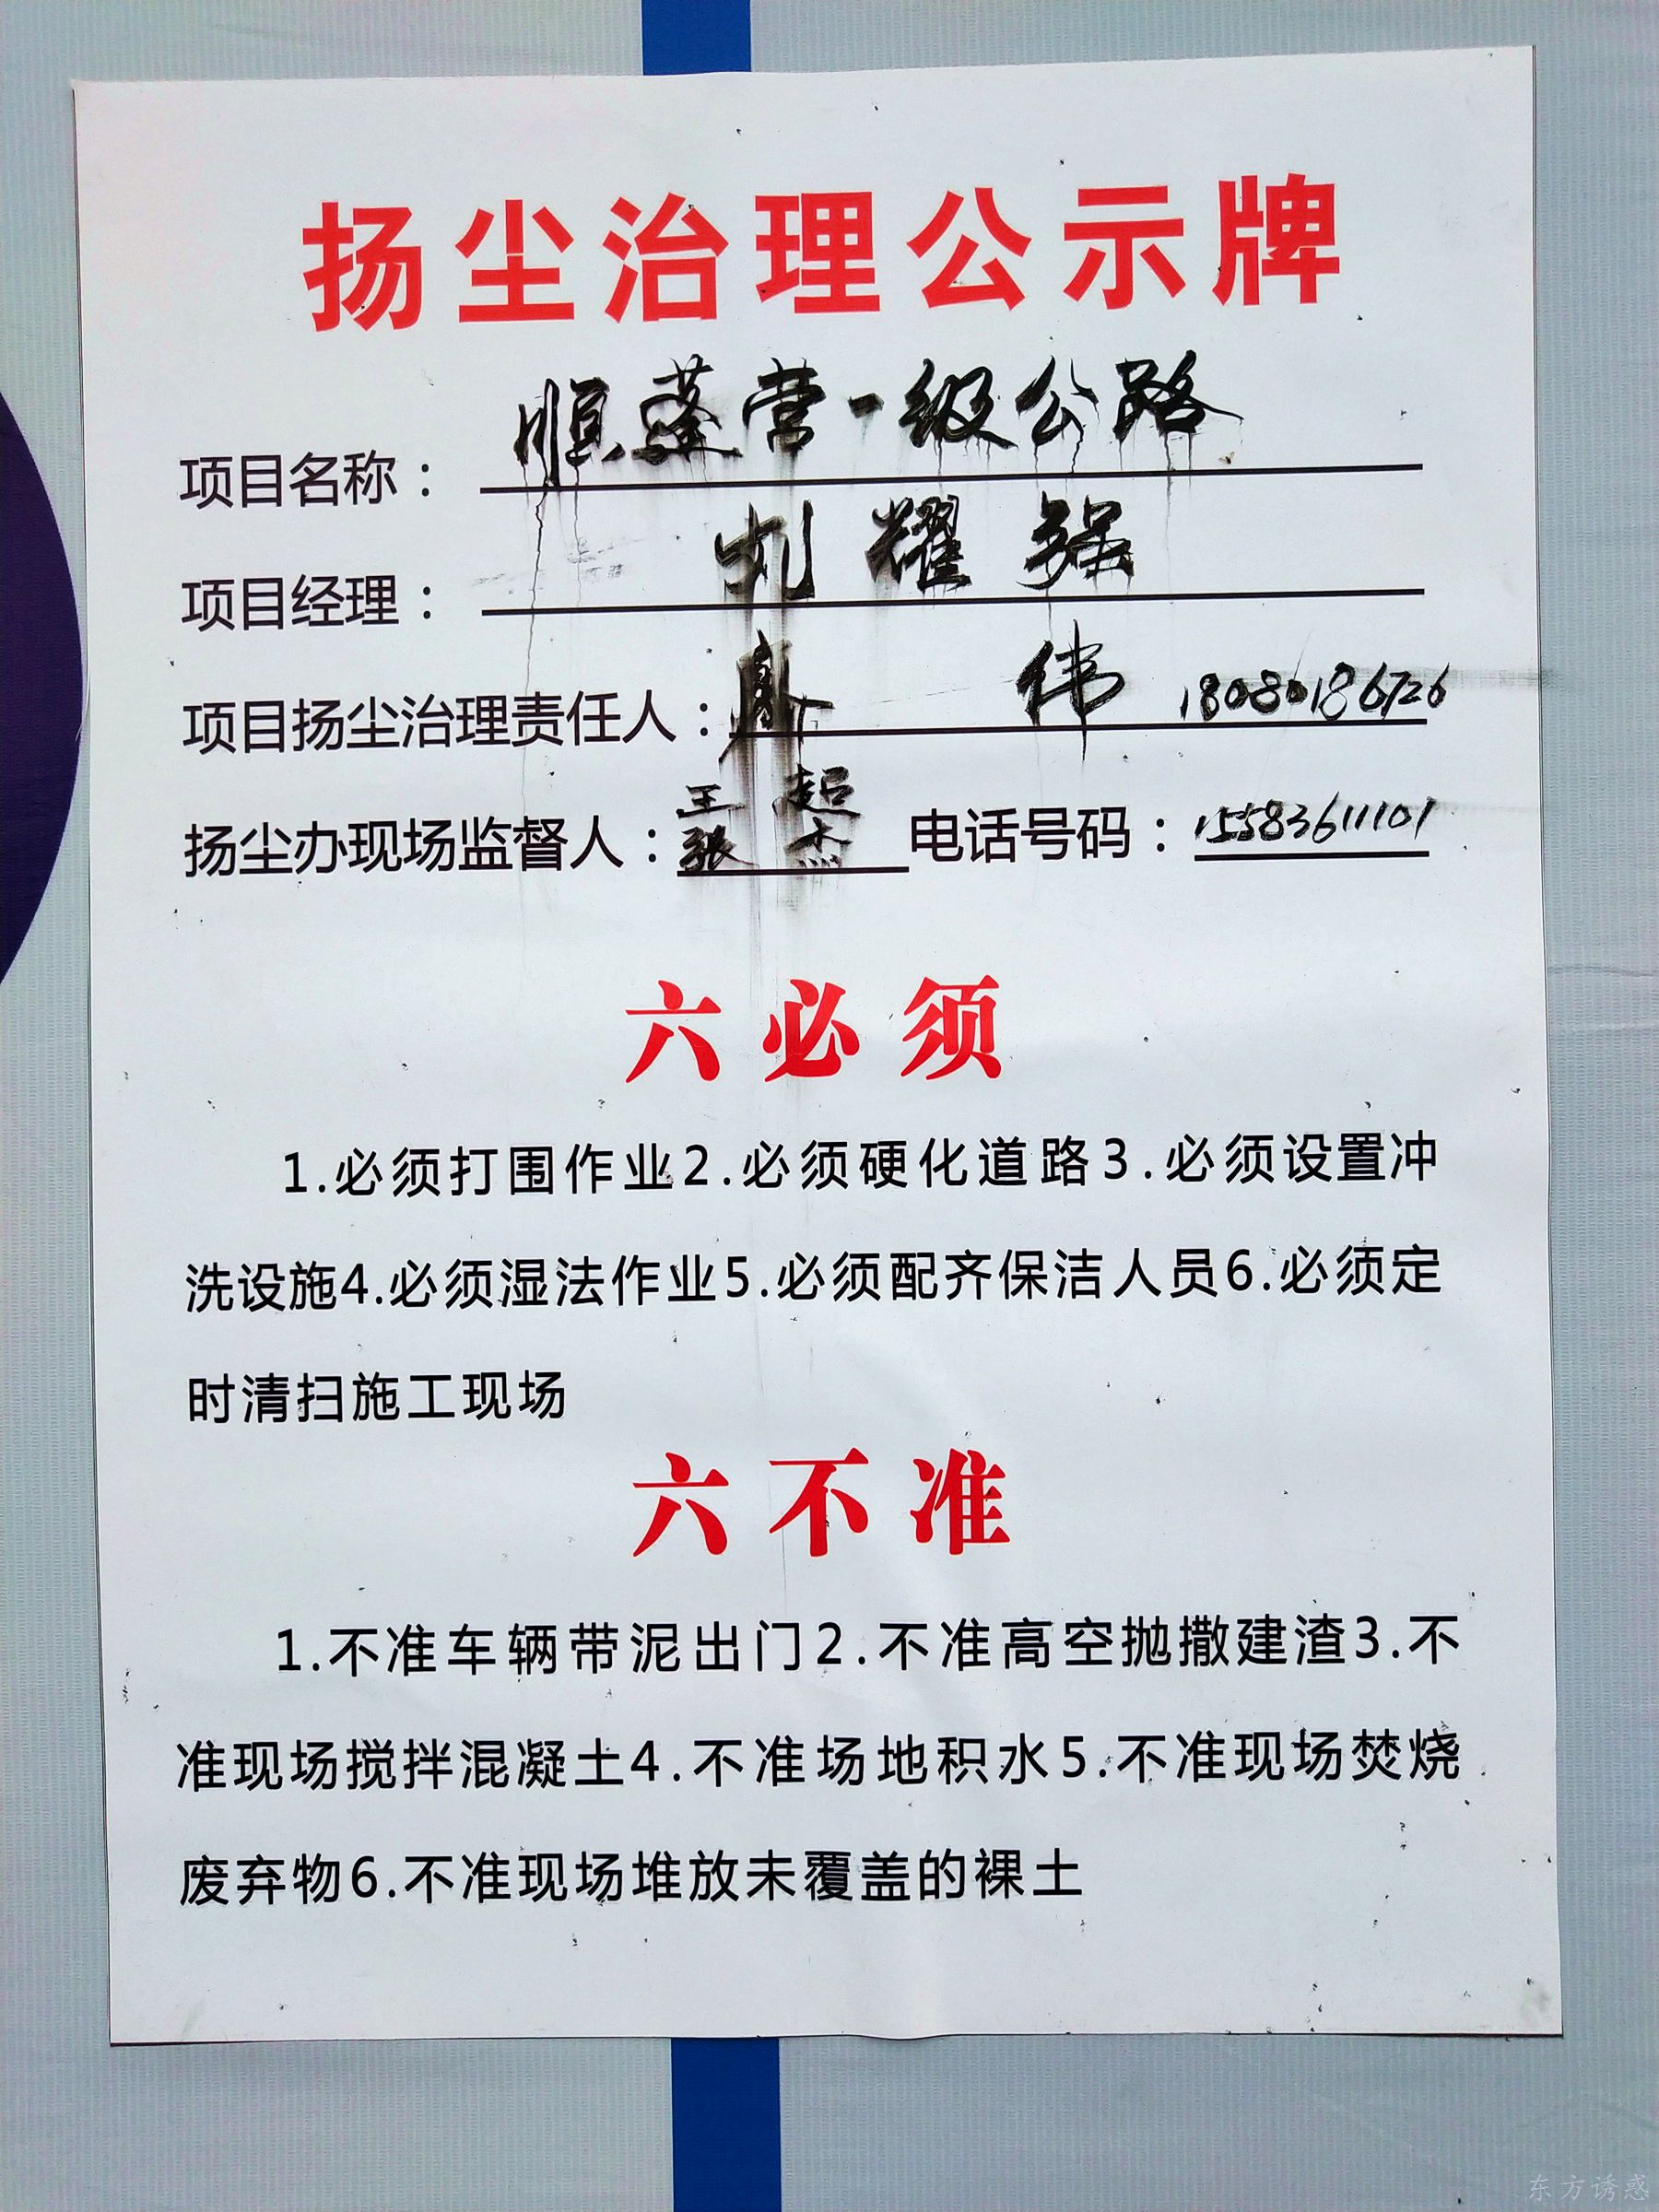 扬尘治理公示牌
项目名称：顺蓬营一级公路
项目经理：刘耀强
项目扬尘治理责任人：伟 18080186726
扬尘办现场监督人：王超 张杰 电话号码：15583611101
六必须
1.必须打围作业2.必须硬化道路3.必须设置冲
洗设施4.必须湿法作业5.必须配齐保洁人员6.必须定
时清扫施工现场
六不准
1.不准车辆带泥出门2.不准高空抛撒建渣3.不
准现场搅拌混凝土4.不准场地积水5.不准现场焚烧
废弃物6.不准现场堆放未覆盖的裸土
东方诱惑